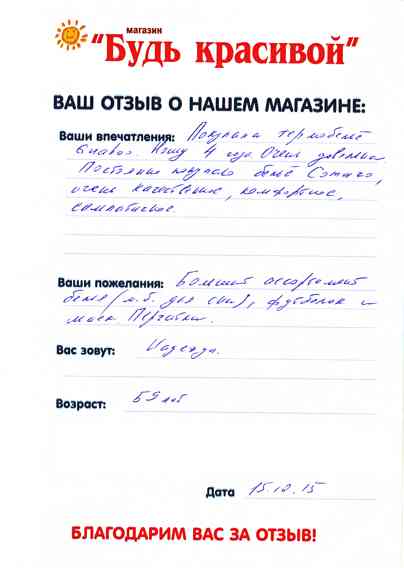 магазин
"Будь красивой"
ВАШ ОТЗЫВ О НАШЕМ МАГАЗИНЕ:
Ваши впечатления: Покупала термобельё
6 назад. Ношу 4 года. Очень довольна
Постоянно покупаю бельё
очень качественное, комфортное,
симпатичное.
Ваши пожелания: Больший ассортимент
белья (м.б. для сна), футболок и
маек. Перчатки.
Вас зовут: Надежда.
Возраст: 59 лет
Дата 15.12.15
БЛАГОДАРИМ ВАС ЗА ОТЗЫВ!